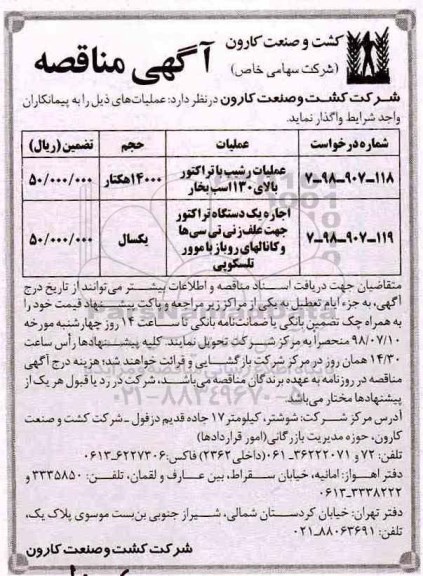 کشت و صنعت کارون
(شرکت سهامی خاص)
آگهی مناقصه
شرکت کشت و صنعت کارون در نظر دارد: عملیات‌های ذیل را به پیمانکاران
واجد شرایط واگذار نماید.
شماره درخواست عملیات حجم تضمین (ریال)
۷-۹۸-۹۰۷-۱۱۸ عملیات رشیب با تراکتور بالای ۱۳۰ اسب بخار ۱۴۰۰۰هکتار ۵۰/۰۰۰/۰۰۰
۷-۹۸-۹۰۷-۱۱۹ اجاره یک دستگاه تراکتور جهت علف‌زنی تی سی‌ها و کانالهای روباز با موور تلسکوپی یکسال ۵۰/۰۰۰/۰۰۰
متقاضیان جهت دریافت اسناد مناقصه و اطلاعات بیشتر می‌توانند از تاریخ درج
آگهی، به جزء ایام تعطیل به یکی از مراکز زیر مراجعه و پاکت پیشنهاد قیمت خود را
به همراه چک تضمین بانکی یا ضمانت‌نامه بانکی تا ساعت ۱۴ روز چهارشنبه مورخه
۹۸/۰۷/۱۰ منحصراً به مرکز شرکت تحویل نمایند. کلیه پیشنهادها رأس ساعت
۱۴/۳۰ همان روز در مرکز شرکت بازگشایی و قرائت خواهند شد؛ هزینه درج آگهی
مناقصه در روزنامه به عهده برندگان مناقصه می‌باشد، شرکت در رد یا قبول هر یک از
پیشنهادها مختار می‌باشد.
آدرس مرکز شرکت: شوشتر، کیلومتر ۱۷ جاده قدیم دزفول -شرکت کشت و صنعت
کارون، حوزه مدیریت بازرگانی(امور قراردادها)
تلفن: ۷۲ و ۳۶۲۲۲۰۷۱-۰۶۱ (داخلی ۲۳۶۲) فاکس: ۰۶۱۳-۶۲۲۷۳۰۶
دفتر اهواز: امانیه، خیابان سقراط، بین عارف و لقمان، تلفن: ۳۳۳۵۸۵۰ و
۰۶۱۳-۳۳۳۸۲۲۲
دفتر تهران: خیابان کردستان شمالی، شیراز جنوبی بن‌بست موسوی پلاک یک،
تلفن: ۰۲۱-۸۸۰۶۳۶۹۱
شرکت کشت و صنعت کارون